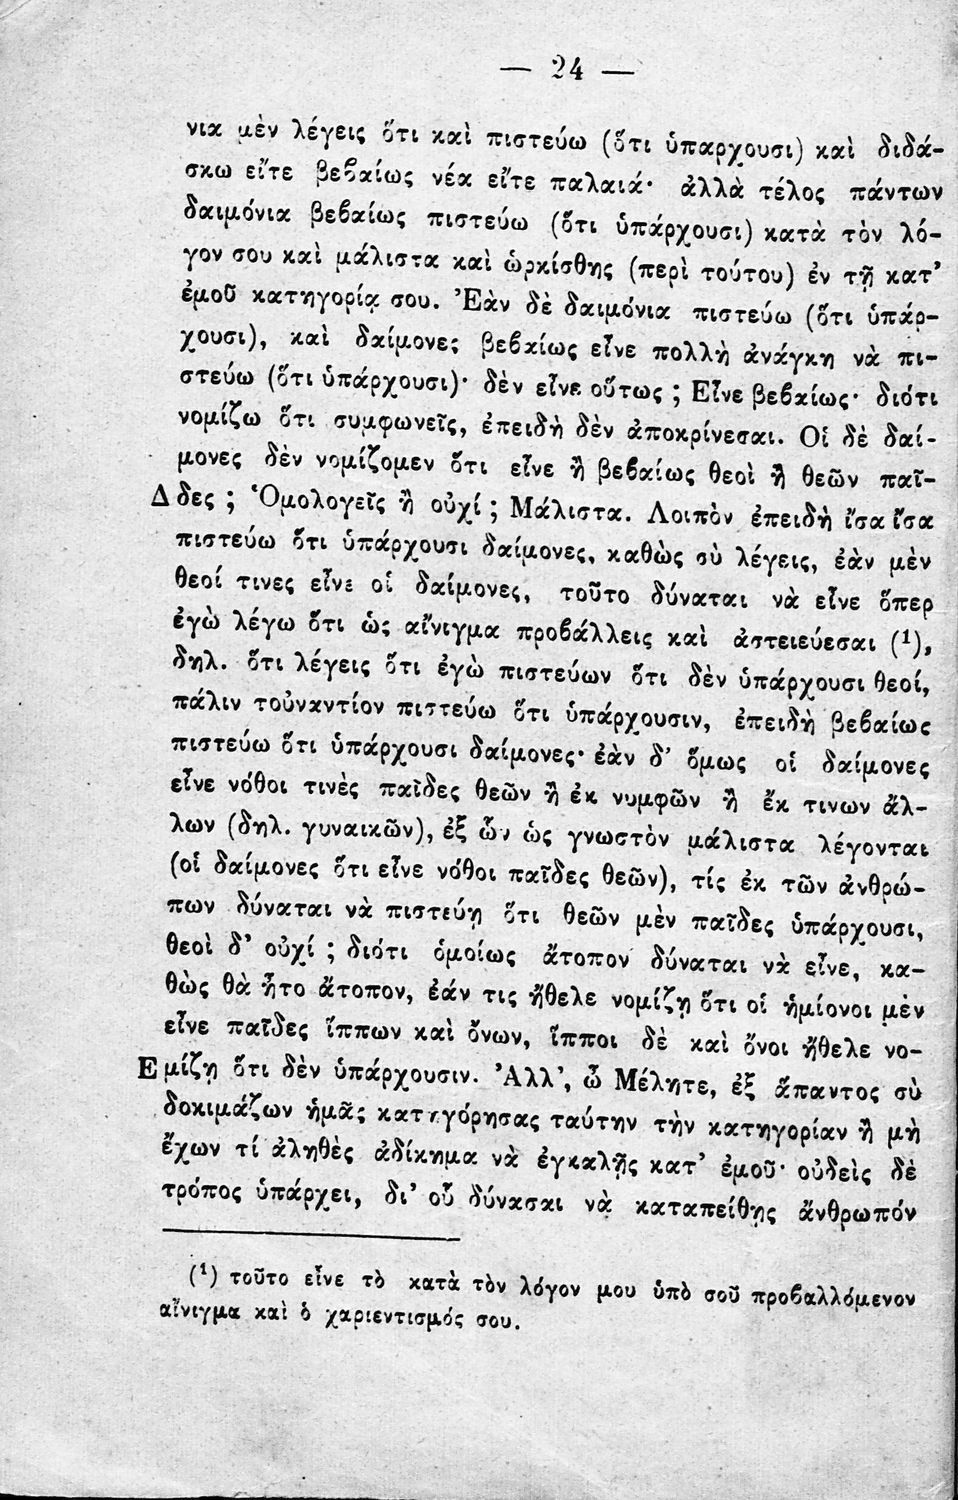 — 24 —
νια μὲν λέγεις ὅτι καὶ πιστεύω (ὅτι ὑπαρχουσι) καὶ διδά-
σκω εἴτε βεβαίως νέα εἴτε παλαιά· ἀλλὰ τέλος πάντων
δαιμόνια βεβαίως πιστεύω (ὅτι ὑπάρχουσι) κατὰ τὸν λό-
γον σου καὶ μάλιστα καὶ ὡρκίσθης (περὶ τούτου) ἐν τῇ κατ'
ἐμοῦ κατηγορίᾳ σου. Ἐὰν δὲ δαιμόνια πιστεύω (ὅτι ὑπάρ-
χουσι), καὶ δαίμονες βεβαίως εἶνε πολλὴ ἀνάγκη νὰ πι-
στεύω (ὅτι ὑπάρχουσι)· δὲν εἶνε οὕτως ; Εἶνε βεβαίως· διότι
νομίζω ὅτι συμφωνεῖς, ἐπειδὴ δὲν ἀποκρίνεσαι. Οἱ δὲ δαί-
μονες δὲν νομίζομεν ὅτι εἶνε ἢ βεβαίως θεοὶ ἢ θεῶν παῖ-
Δ δες ; Ὁμολογεῖς ἢ οὐχί ; Μάλιστα. Λοιπὸν ἐπειδὴ ἴσα ἴσα
πιστεύω ὅτι ὑπάρχουσι δαίμονες, καθὼς σὺ λέγεις, ἐὰν μὲν
θεοί τινες εἶνε οἱ δαίμονες, τοῦτο δύναται νὰ εἶνε ὅπερ
ἐγὼ λέγω ὅτι ὡς αἴνιγμα προβάλλεις καὶ ἀστειεύεσαι (¹),
δηλ. ὅτι λέγεις ὅτι ἐγὼ πιστεύων ὅτι δὲν ὑπάρχουσι θεοί,
πάλιν τοὐναντίον πιστεύω ὅτι ὑπάρχουσιν, ἐπειδὴ βεβαίως
πιστεύω ὅτι ὑπάρχουσι δαίμονες· ἐὰν δ' ὅμως οἱ δαίμονες
εἶνε νόθοι τινὲς παῖδες θεῶν ἢ ἐκ νυμφῶν ἢ ἔκ τινων ἄλ-
λων (δηλ. γυναικῶν), ἐξ ὧν ὡς γνωστὸν μάλιστα λέγονται
(οἱ δαίμονες ὅτι εἶνε νόθοι παῖδες θεῶν), τίς ἐκ τῶν ἀνθρώ-
πων δύναται νὰ πιστεύῃ ὅτι θεῶν μὲν παῖδες ὑπάρχουσι,
θεοὶ δ' οὐχί ; διότι ὁμοίως ἄτοπον δύναται νὰ εἶνε, κα-
θὼς θὰ ἦτο ἄτοπον, ἐάν τις ἤθελε νομίζῃ ὅτι οἱ ἡμίονοι μὲν
εἶνε παῖδες ἵππων καὶ ὄνων, ἵπποι δὲ καὶ ὄνοι ἤθελε νο-
Ε μίζῃ ὅτι δὲν ὑπάρχουσιν. Ἀλλ', ὦ Μέλητε, ἐξ ἅπαντος σὺ
δοκιμάζων ἡμᾶς κατηγόρησας ταύτην τὴν κατηγορίαν ἢ μὴ
ἔχων τί ἀληθὲς ἀδίκημα νὰ ἐγκαλῇς κατ' ἐμοῦ· οὐδεὶς δὲ
τρόπος ὑπάρχει, δι' οὗ δύνασαι νὰ καταπείθῃς ἄνθρωπόν
(¹) τοῦτο εἶνε τὸ κατὰ τὸν λόγον μου ὑπὸ σοῦ προβαλλόμενον
αἴνιγμα καὶ ὁ χαριεντισμός σου.